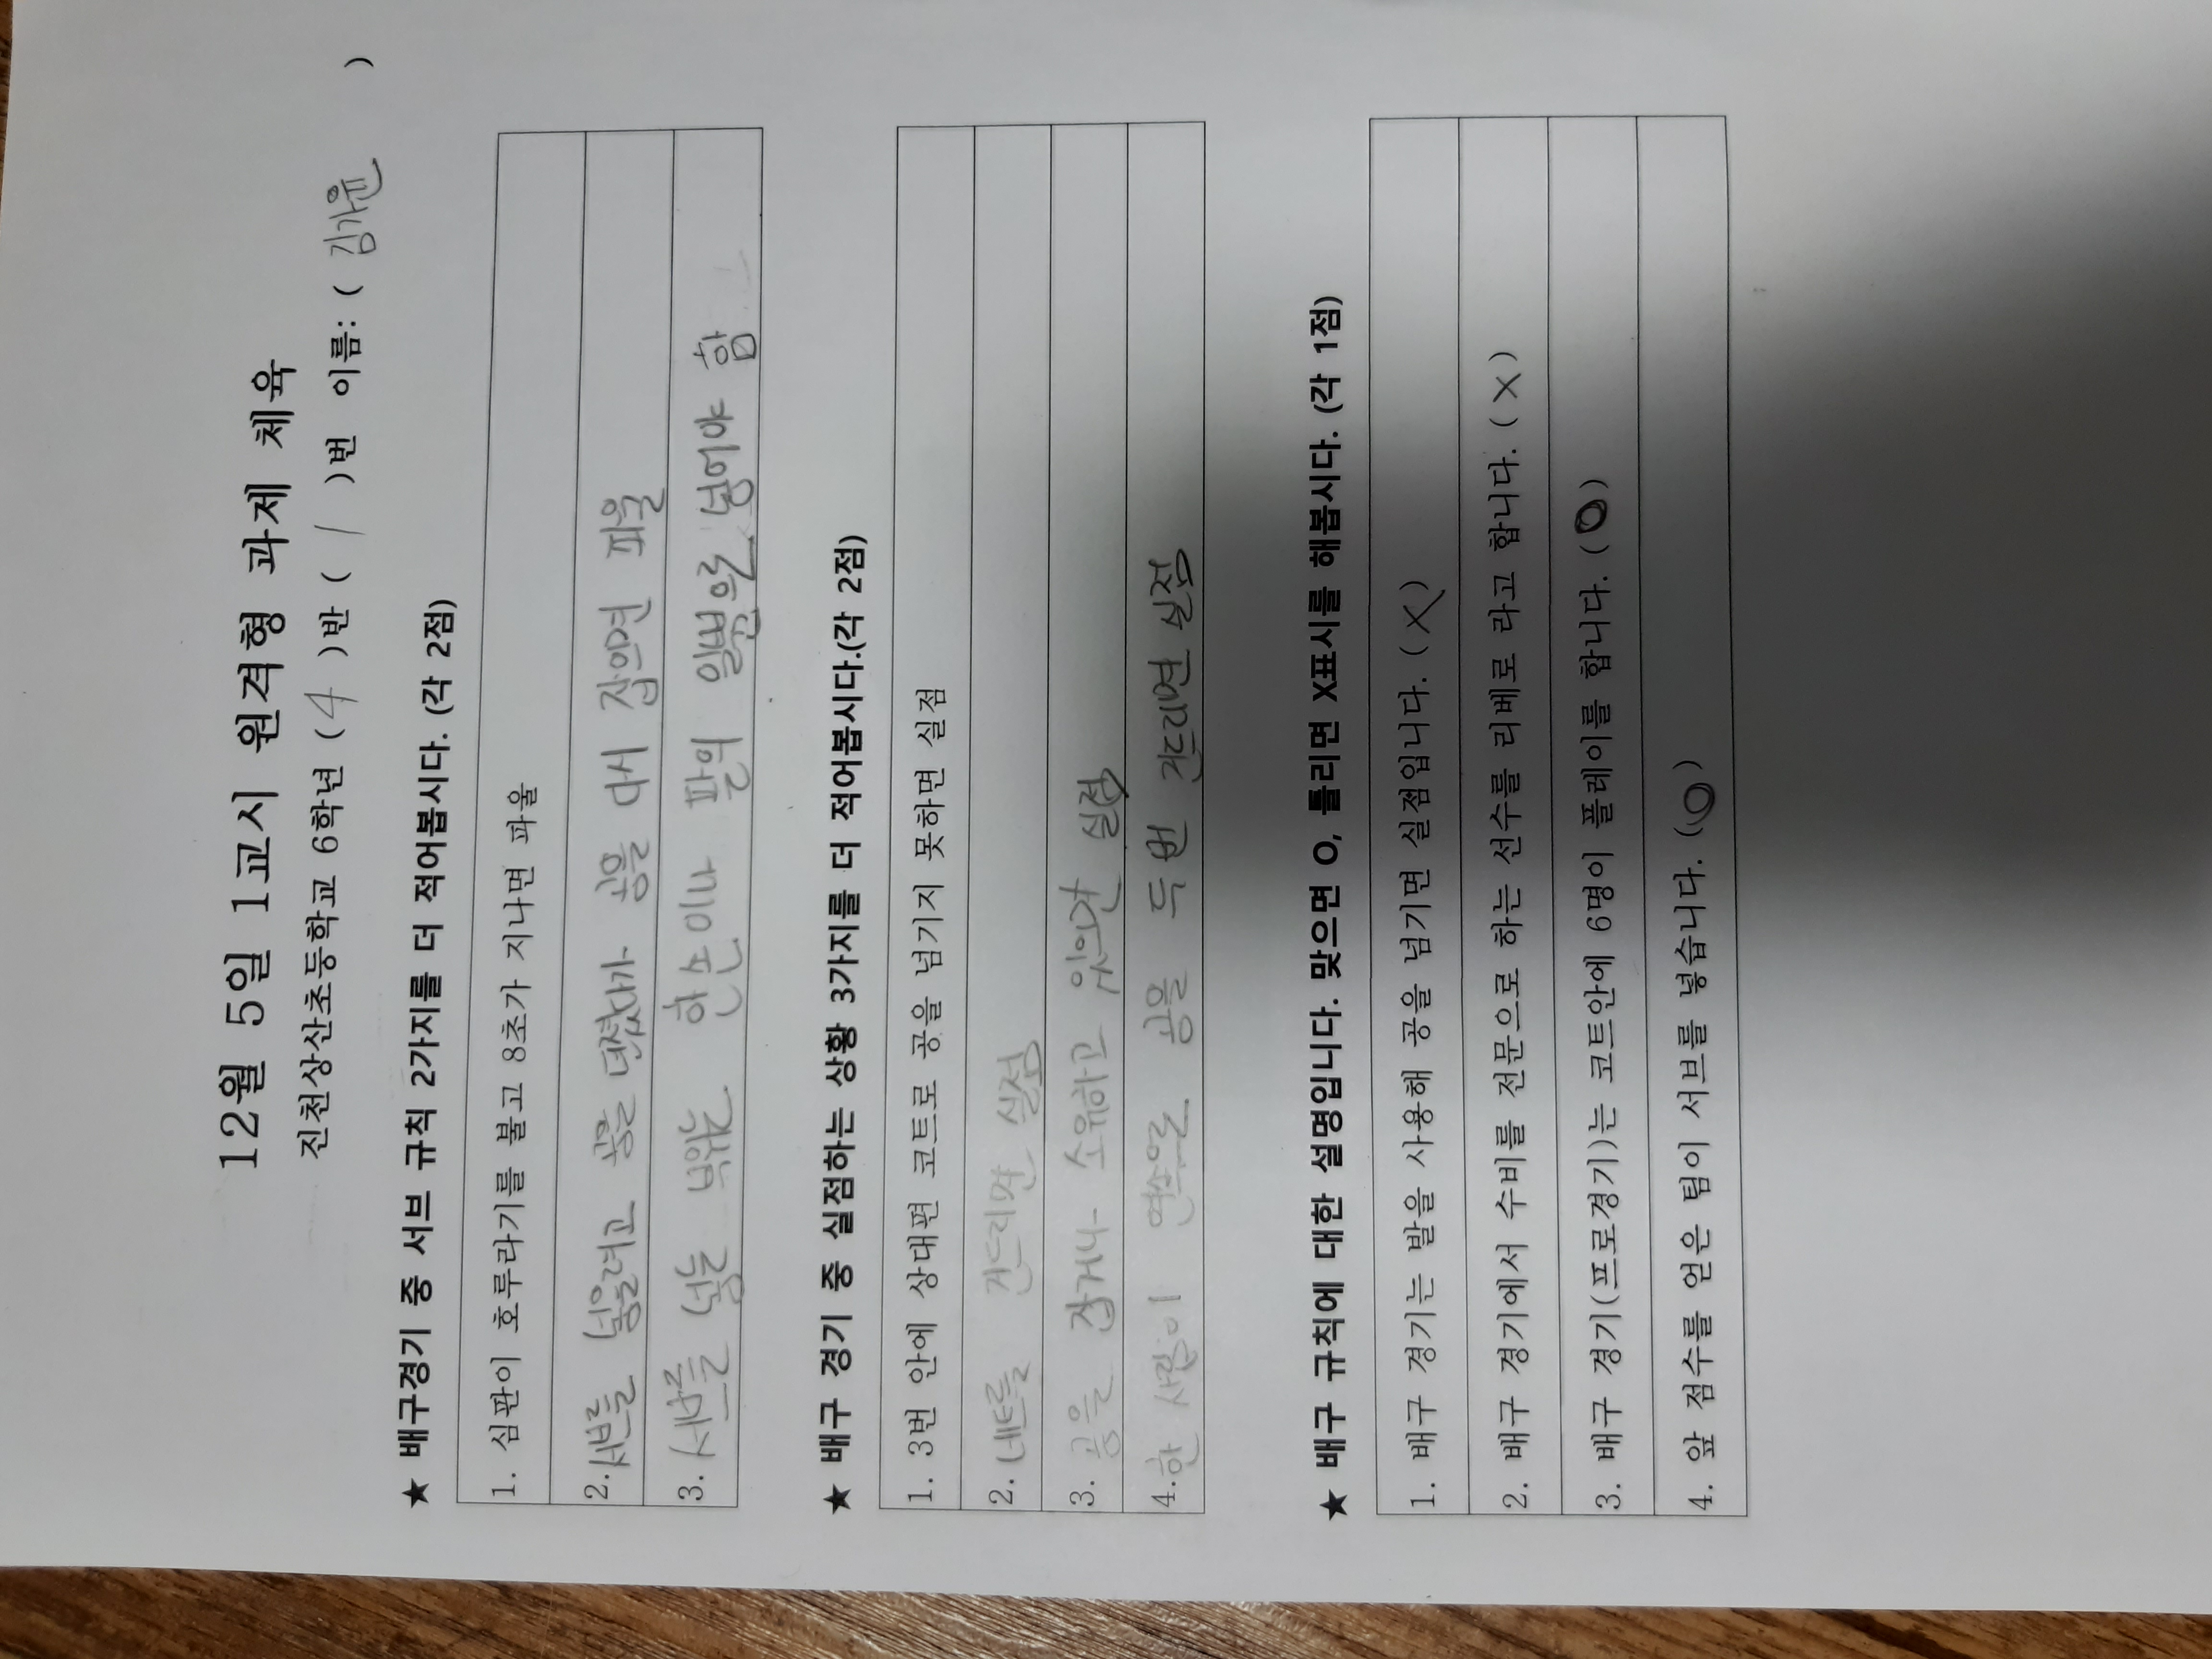 12월 5일 1교시 원격형 과제 체육
진천상산초등학교 6학년 ( 4 )반 ( 1 )번 이름: ( 김가윤 )
★ 배구경기 중 서브 규칙 2가지를 더 적어봅시다. (각 2점)
1. 심판이 호루라기를 불고 8초가 지나면 파울
2. 서브를 넣을려고 공을 던졌다가 공을 다시 잡으면 파울
3. 서브를 넣는 한손이나 팔의 일뿐으로 넣어야 함
★ 배구 경기 중 실점하는 상황 3가지를 더 적어봅시다.(각 2점)
1. 3번 안에 상대편 코트로 공을 넘기지 못하면 실점
2. 네트를 건드리면 실점
3. 공을 잡거나 소유하고 있으면 실점
4. 한 사람이 연속으로 공을 두 번 건드리면 실점
★ 배구 규칙에 대한 설명입니다. 맞으면 O, 틀리면 X표시를 해봅시다. (각 1점)
1. 배구 경기는 발을 사용해 공을 넘기면 실점입니다. ( X )
2. 배구 경기에서 수비를 전문으로 하는 선수를 리베로 라고 합니다. ( X )
3. 배구 경기(프로경기)는 코트안에 6명이 플레이를 합니다. ( O )
4. 앞 점수를 얻은 팀이 서브를 넣습니다. ( O )